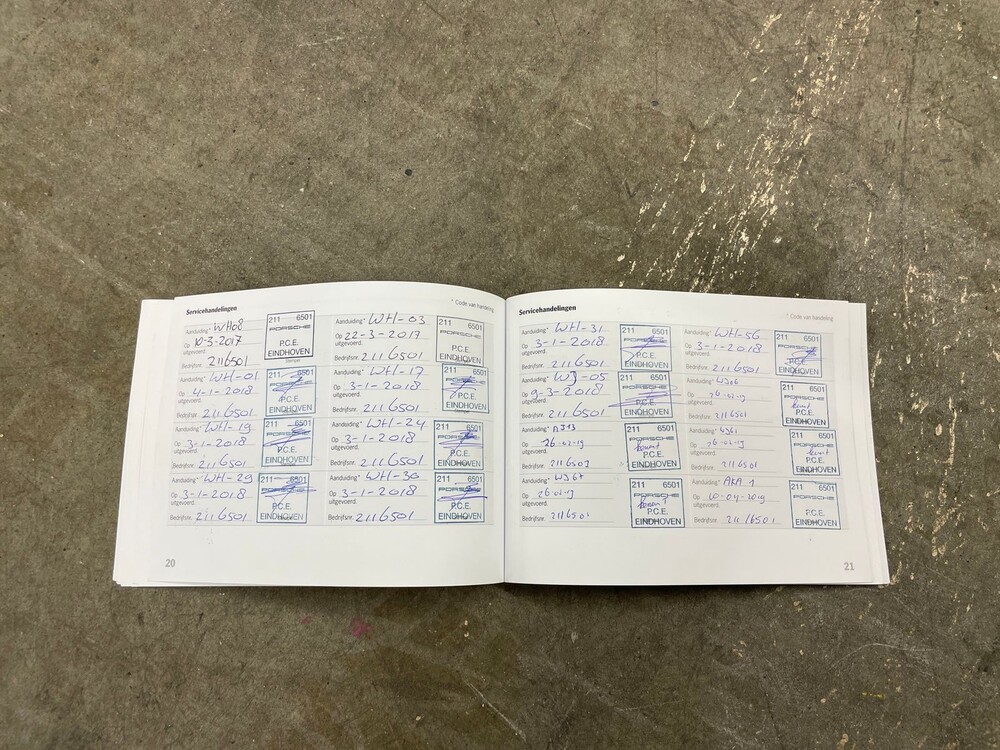 Servicehandelingen
* Code van handeling
Aanduiding* WH08
Op 10-3-2017
uitgevoerd.
Bedrijfsnr. 2116501
211 6501
PORSCHE
P.C.E.
EINDHOVEN
Stempel
Aanduiding* WH-03
Op 22-3-2017
uitgevoerd.
Bedrijfsnr. 2116501
211 6501
PORSCHE
P.C.E.
EINDHOVEN
Aanduiding* WH-01
Op 4-1-2018
uitgevoerd.
Bedrijfsnr. 2116501
211 6501
PORSCHE
P.C.E.
EINDHOVEN
Aanduiding* WH-17
Op 3-1-2018
uitgevoerd.
Bedrijfsnr. 2116501
211 6501
PORSCHE
P.C.E.
EINDHOVEN
Aanduiding* WH-19
Op 3-1-2018
uitgevoerd.
Bedrijfsnr. 2116501
211 6501
PORSCHE
P.C.E.
EINDHOVEN
Aanduiding* WH-24
Op 3-1-2018
uitgevoerd.
Bedrijfsnr. 2116501
211 6501
PORSCHE
P.C.E.
EINDHOVEN
Aanduiding* WH-29
Op 3-1-2018
uitgevoerd.
Bedrijfsnr. 2116501
211 6501
PORSCHE
P.C.E.
EINDHOVEN
Aanduiding* WH-30
Op 3-1-2018
uitgevoerd.
Bedrijfsnr. 2116501
211 6501
PORSCHE
P.C.E.
EINDHOVEN
20
Servicehandelingen
* Code van handeling
Aanduiding* WH-31
Op 3-1-2018
uitgevoerd.
Bedrijfsnr. 2116501
211 6501
PORSCHE
P.C.E.
EINDHOVEN
Aanduiding* WH-56
Op 3-1-2018
uitgevoerd.
Bedrijfsnr. 2116501
211 6501
PORSCHE
P.C.E.
EINDHOVEN
Aanduiding* WJ-05
Op 9-3-2018
uitgevoerd.
Bedrijfsnr. 2116501
211 6501
PORSCHE
P.C.E.
EINDHOVEN
Aanduiding*
Op 26-02-19
uitgevoerd.
Bedrijfsnr. 2116501
211 6501
PORSCHE
P.C.E.
EINDHOVEN
Aanduiding* AJ13
Op 26-02-19
uitgevoerd.
Bedrijfsnr. 2116501
211 6501
PORSCHE
P.C.E.
EINDHOVEN
Aanduiding*
Op 26-02-19
uitgevoerd.
Bedrijfsnr. 2116501
211 6501
PORSCHE
P.C.E.
EINDHOVEN
Aanduiding* WJ67
Op 26-02-19
uitgevoerd.
Bedrijfsnr. 2116501
211 6501
PORSCHE
P.C.E.
EINDHOVEN
Aanduiding* AKA 1
Op 10-04-2019
uitgevoerd.
Bedrijfsnr. 2116501
211 6501
PORSCHE
P.C.E.
EINDHOVEN
21